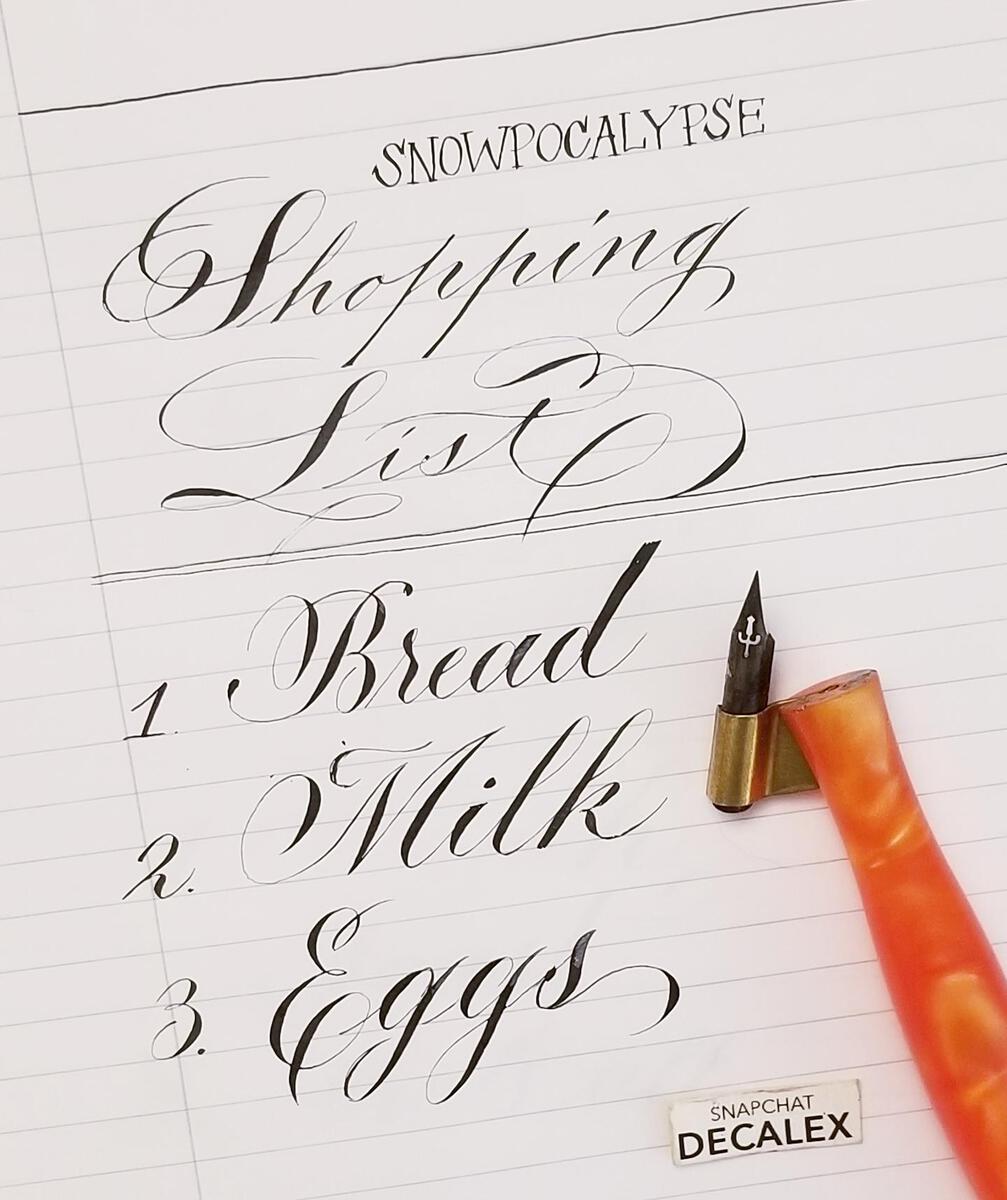 SNOWPOCALYPSE
Shopping
List
1. Bread
2. Milk
3. Eggs
SNAPCHAT
DECALEX